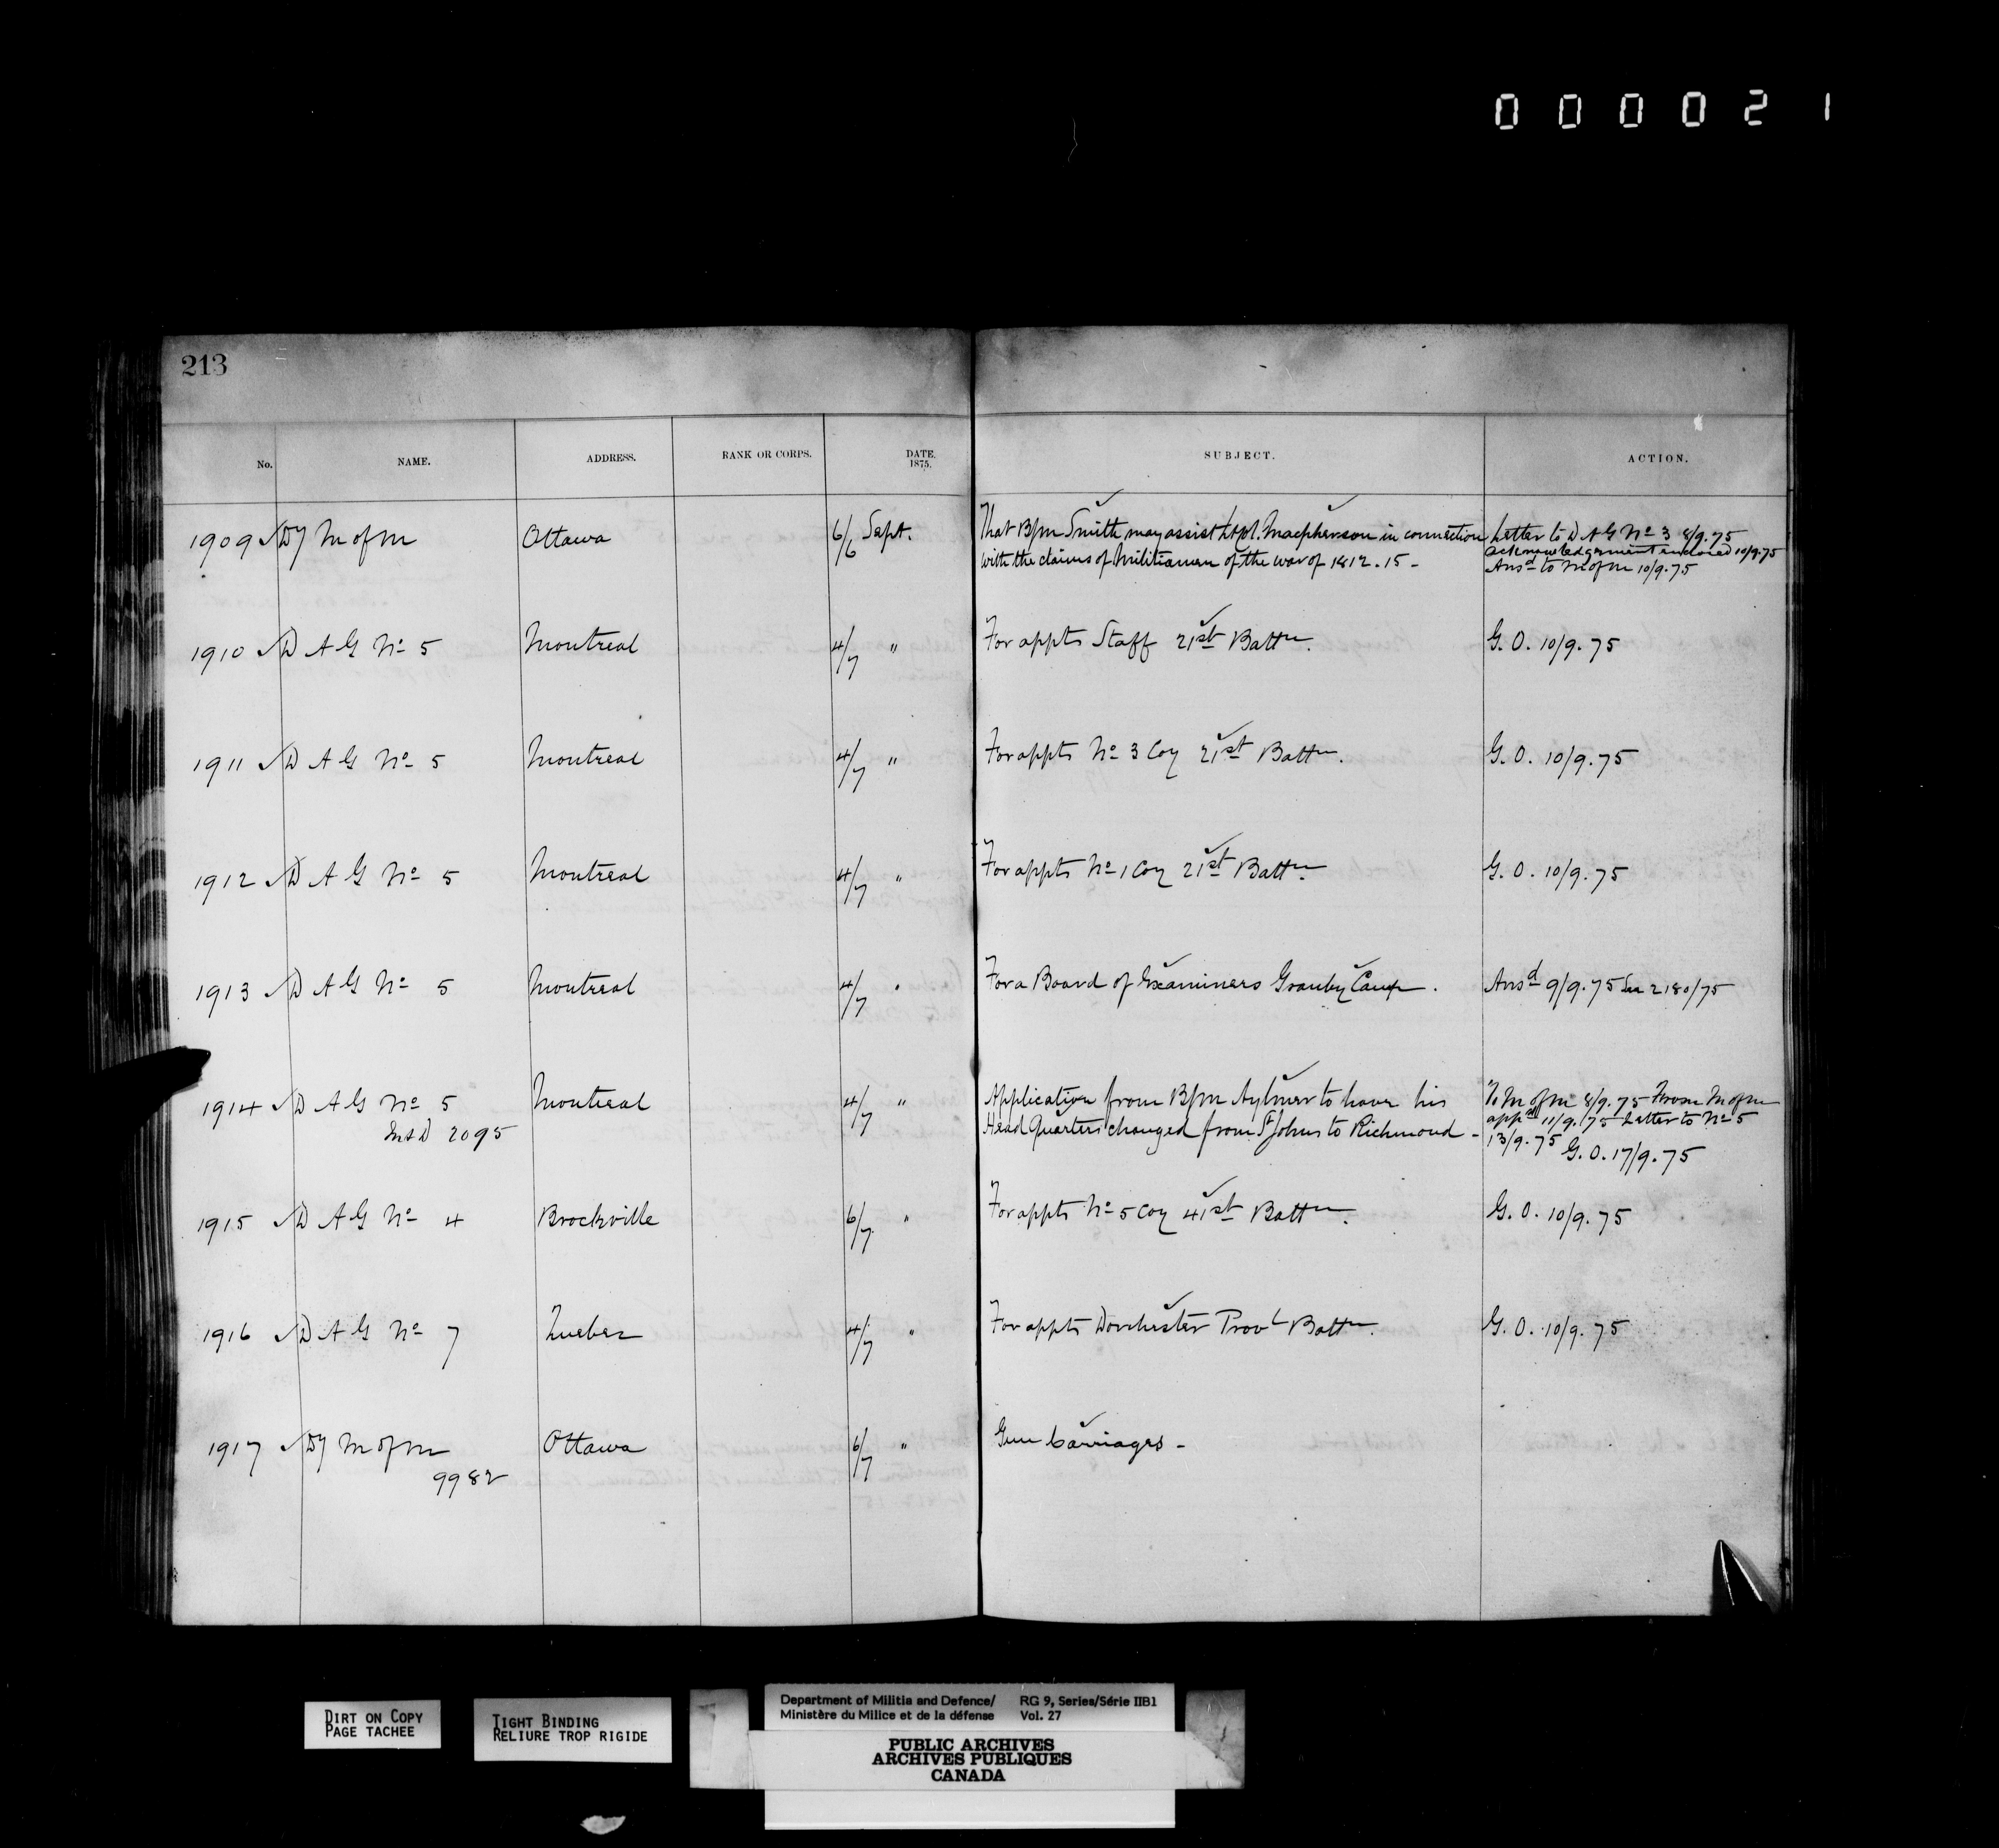 000021
213
No. NAME. ADDRESS. RANK OR CORPS. DATE. 1875. SUBJECT. ACTION.
1909 Dy M of M Ottawa 6/6 Sept. That B/M Smith may assist Lt Col. Macpherson in connection Letter to D A G No 3 8/9.75
with the claims of Militiamen of the war of 1812.15 - acknowledgement enclosed 10/9.75
Ansd to M of M 10/9.75
1910 D A G No 5 Montreal 4/7 " For appts Staff 21st Battn. G.O. 10/9.75
1911 D A G No 5 Montreal 4/7 " For appts No 3 Coy 21st Battn. G.O. 10/9.75
1912 D A G No 5 Montreal 4/7 " For appts No 1 Coy 21st Battn. G.O. 10/9.75
1913 D A G No 5 Montreal 4/7 " For a Board of Examiners Granby Camp. Ansd 9/9.75 See 2180/75
1914 D A G No 5 Montreal 4/7 " Application from B/M Aylmer to have his To M of M 8/9.75 From M of M
M&D 2095 Head Quarters changed from St Johns to Richmond - appd 11/9/75 Letter to No 5
13/9.75 G.O. 17/9.75
1915 D A G No 4 Brockville 6/7 " For appts No 5 Coy 41st Battn. G.O. 10/9.75
1916 D A G No 7 Quebec 4/7 " For appts Dorchester Provl Battn. G.O. 10/9.75
1917 Dy M of M Ottawa 6/7 " Gun Carriages -
9982
DIRT ON COPY
PAGE TACHEE
TIGHT BINDING
RELIURE TROP RIGIDE
Department of Militia and Defence/ RG 9, Series/Série IIB1
Ministère du Milice et de la défense Vol. 27
PUBLIC ARCHIVES
ARCHIVES PUBLIQUES
CANADA